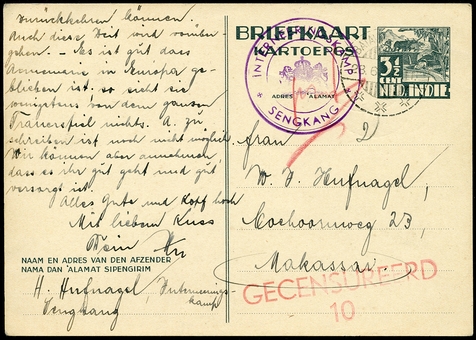 zurückkehren können.
Auch diese Zeit wird vorüber-
gehen. — Es ist gut dass
Annemarie in Europa ge-
blieben ist. so sieht sie
wenigstens von dem ganzen
Trauerspiel nichts. A. zu
schreiben ist noch nicht möglich.
Wir können aber annehmen,
dass es ihr gut geht und gut
versorgt ist.
Alles Gute und Kopf hoch
Mit lieben Kuss
Dein
NAAM EN ADRES VAN DEN AFZENDER
NAMA DAN ALAMAT SIPENGIRIM
H. Hufnagel, Interneerings-
kamp
Sengkang
BRIEFKAART
KARTOEPOS
INTERNEERINGSKAMP
SENGKANG
ADRES ALAMAT
3½ CT
NED. INDIE
frau
W. J. Hufnagel,
Coehoornweg 23,
Makassar.
GECENSUREERD
10